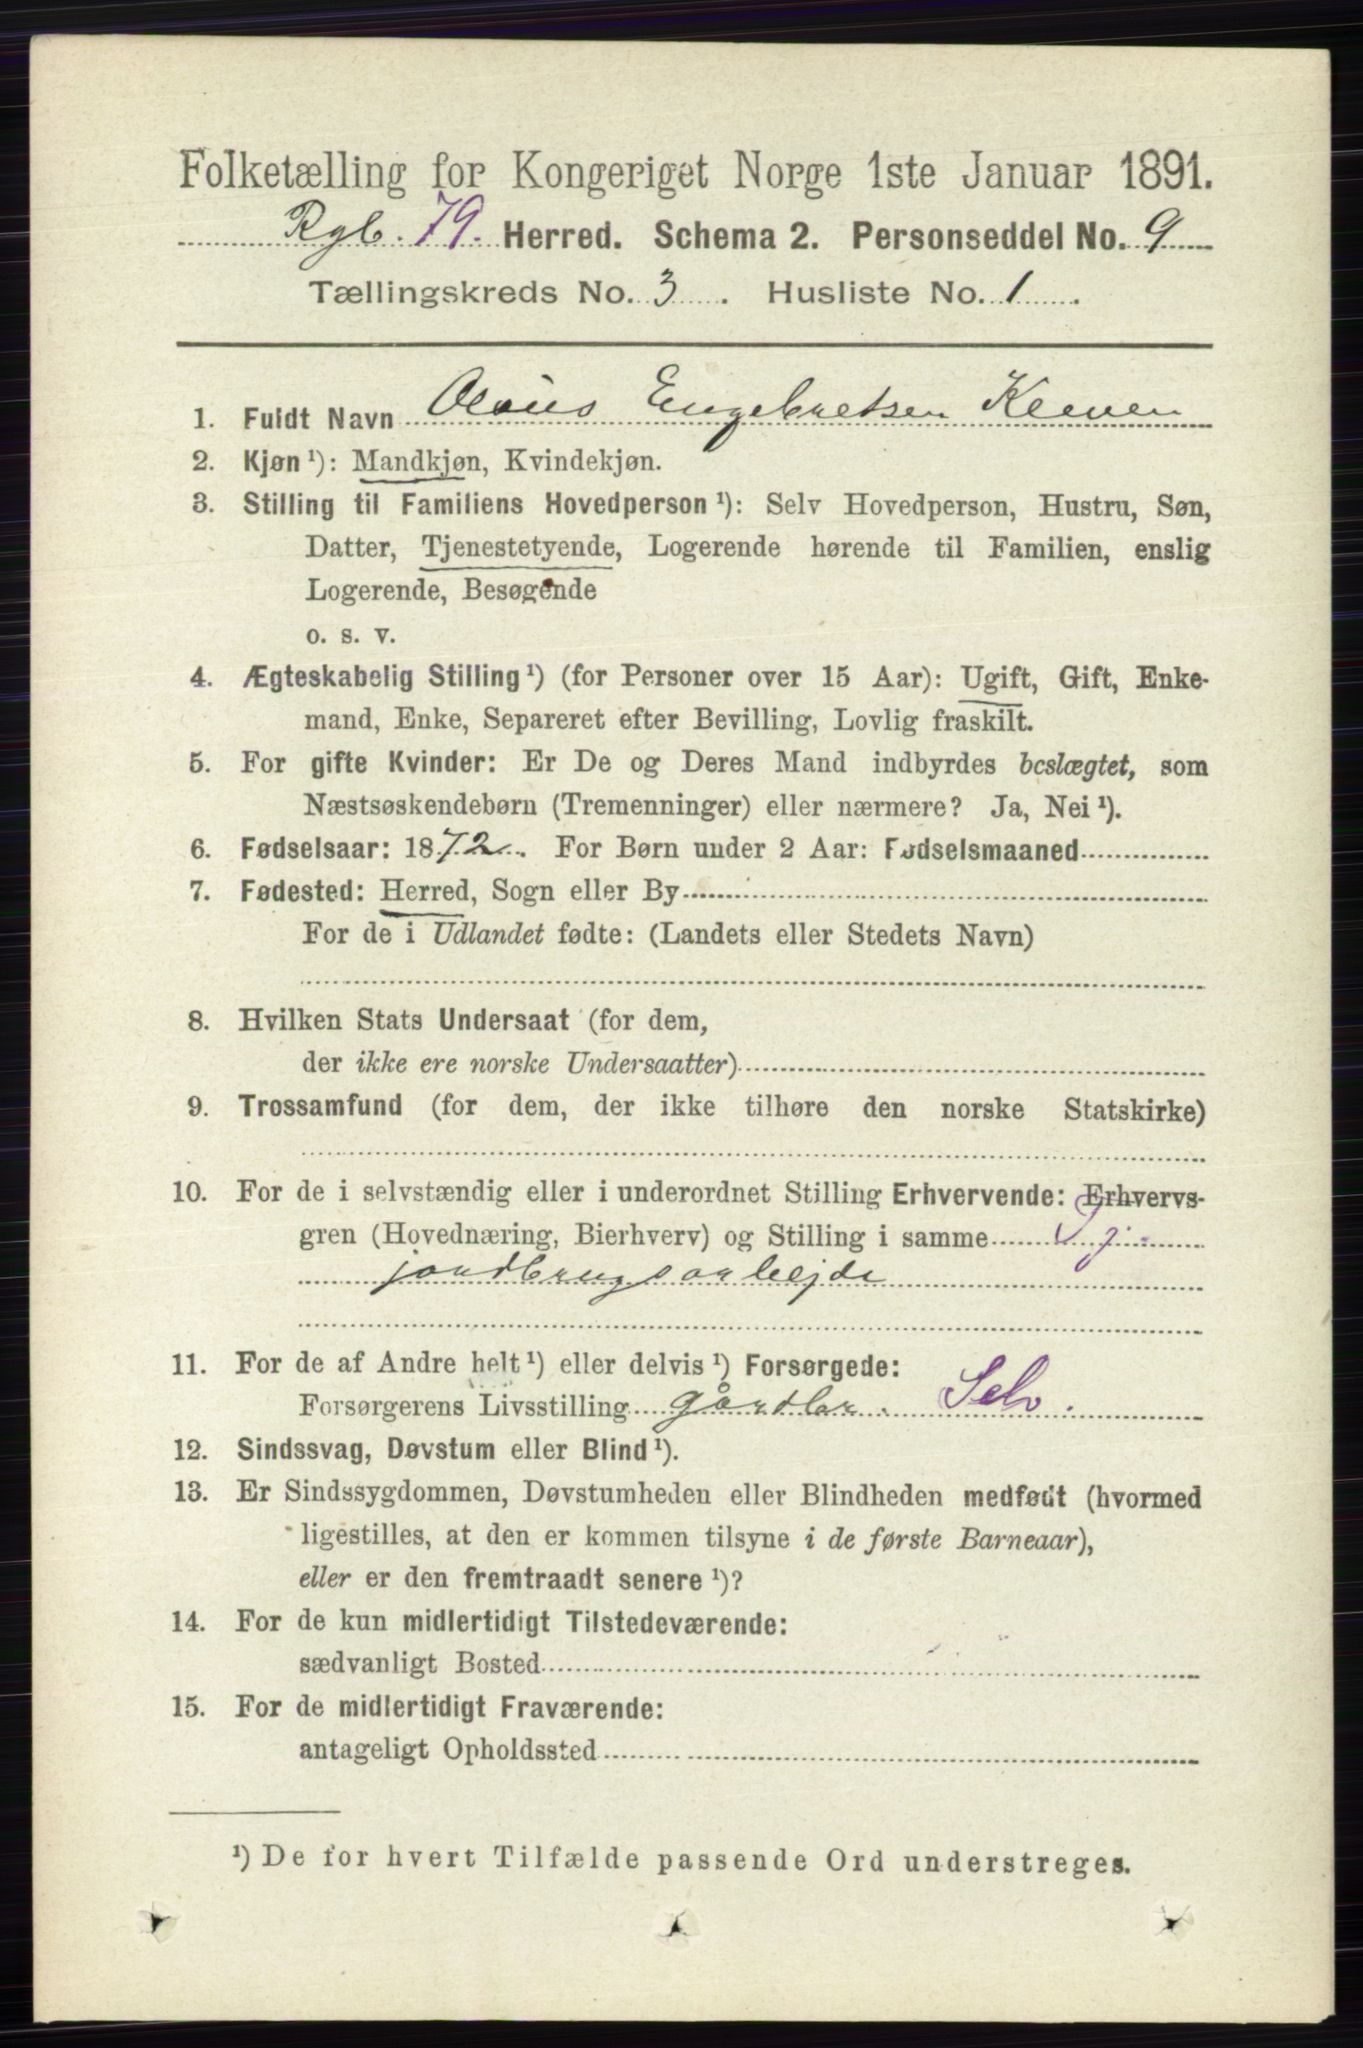 Folketælling for Kongeriget Norge 1ste Januar 1891.
Rgb. 79. Herred. Schema 2. Personseddel No. 9
Tællingskreds No. 3. Husliste No. 1.
1. Fuldt Navn Olaus Engebretsen
2. Kjøn¹): Mandkjøn, Kvindekjøn.
3. Stilling til Familiens Hovedperson¹): Selv Hovedperson, Hustru, Søn,
Datter, Tjenestetyende, Logerende hørende til Familien, enslig
Logerende, Besøgende
o. s. v.
4. Ægteskabelig Stilling¹) (for Personer over 15 Aar): Ugift, Gift, Enke-
mand, Enke, Separeret efter Bevilling, Lovlig fraskilt.
5. For gifte Kvinder: Er De og Deres Mand indbyrdes beslægtet, som
Næstsøskendebørn (Tremenninger) eller nærmere? Ja, Nei¹).
6. Fødselsaar: 1872. For Børn under 2 Aar: Fødselsmaaned
7. Fødested: Herred, Sogn eller By
For de i Udlandet fødte: (Landets eller Stedets Navn)
8. Hvilken Stats Undersaat (for dem,
der ikke ere norske Undersaatter)
9. Trossamfund (for dem, der ikke tilhøre den norske Statskirke)
10. For de i selvstændig eller i underordnet Stilling Erhvervende: Erhvervs-
gren (Hovednæring, Bierhverv) og Stilling i samme Tj.
jordbrugsarbejde
11. For de af Andre helt¹) eller delvis¹) Forsørgede:
Forsørgerens Livsstilling gårdbr. Selv.
12. Sindssvag, Døvstum eller Blind¹).
13. Er Sindssygdommen, Døvstumheden eller Blindheden medfødt (hvormed
ligestilles, at den er kommen tilsyne i de første Barneaar),
eller er den fremtraadt senere¹)?
14. For de kun midlertidigt Tilstedeværende:
sædvanligt Bosted
15. For de midlertidigt Fraværende:
antageligt Opholdssted
¹) De for hvert Tilfælde passende Ord understreges.